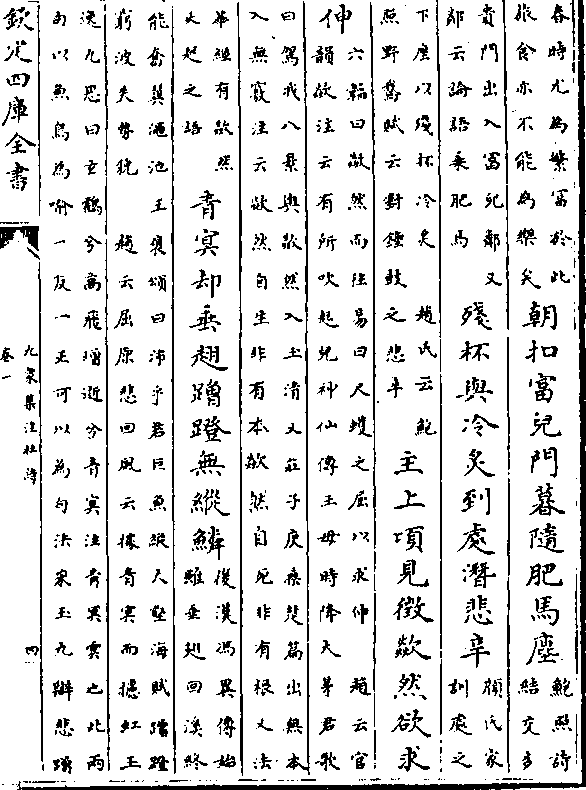 春時尤為繁富於此
旅食亦不能為樂矣
朝扣富兒門暮隨肥馬塵
鮑照詩
結交多
貴門出入富兒鄰又
郎云論語乘肥馬
殘杯與冷炙到處潛悲辛
顔氏家
訓處之
下座以殘杯冷炙 趙氏云鮑
照野鵞賦云對鍾鼓之悲辛
主上頃見徵歘然欲求
伸
六韜曰歘然而往易曰尺蠖之屈以求伸 趙云官
韻歘注云有所吹起皃神仙傳王母時降天茅君歌
曰駕我八景輿歘然入玉清又莊子庚桑楚篇出無本
入無竅注云歘然自生非有本歘然自死非有根又法
華經有歘然
火起之語
青冥却垂翅蹭蹬無縱鱗
後漢馮異傳始
雖垂翅回溪終
能奮翼澠池 王褒頌曰沛乎若巨魚縱大壑海賦蹭蹬
窮波失勢貌 趙云屈原悲回風云據青冥而攄虹王
逸九思曰玄鶴兮高飛增逝兮青冥注青冥雲也此兩
句以魚鳥為喻一反一正可以為句法宋玉九辯悲蹭
欽定四庫全書
九家集注杜詩
卷一
四